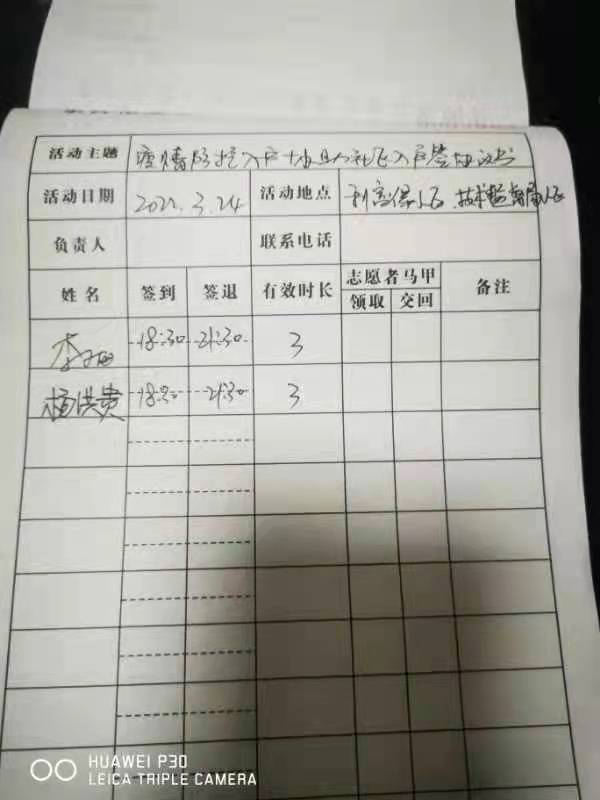 活动主题 疫情防控入户 协助社区入户签协议书
活动日期 2022.3.24 活动地点 利富保小区 技术监督局小区
负责人 联系电话
姓名 签到 签退 有效时长 志愿者马甲 备注
领取 交回
李 18:30 21:30 3
杨洪贵 18:30 21:30 3
HUAWEI P30
LEICA TRIPLE CAMERA